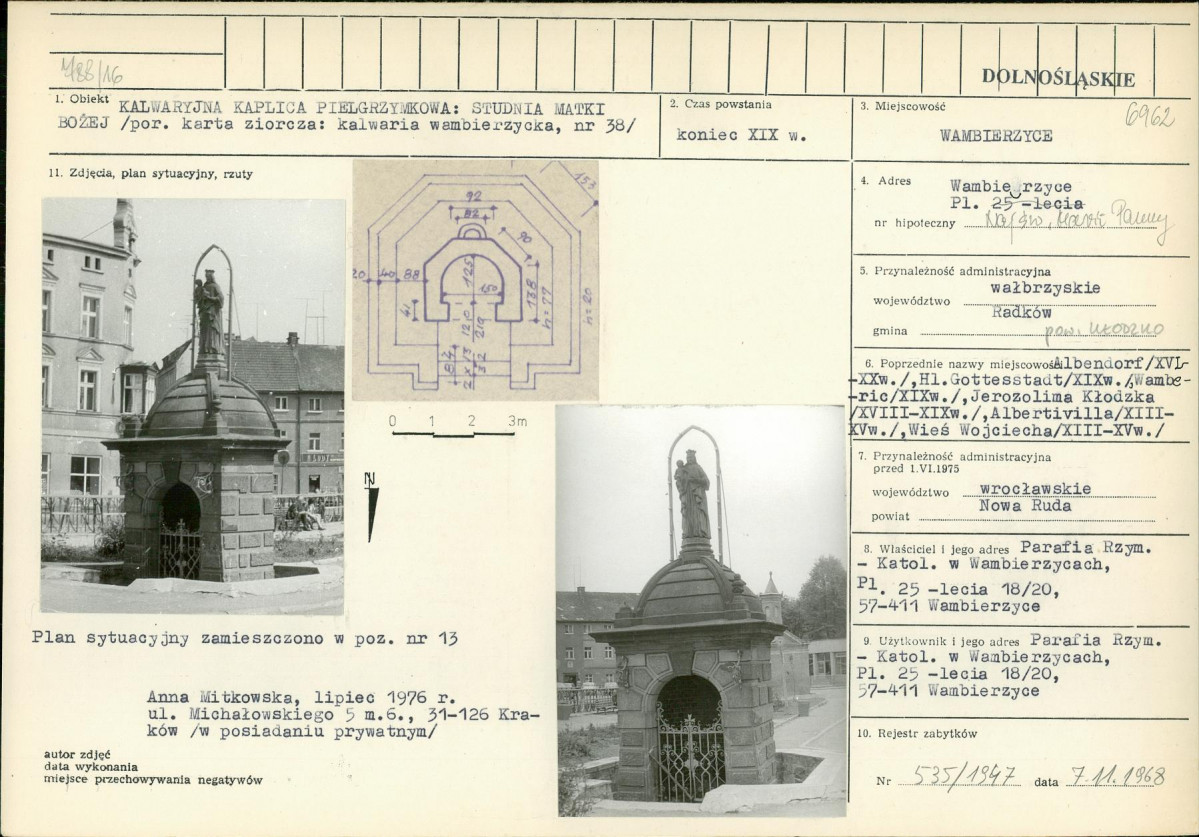 788/16
DOLNOŚLĄSKIE
1. Obiekt KALWARYJNA KAPLICA PIELGRZYMKOWA: STUDNIA MATKI
BOŻEJ /por. karta ziorcza: kalwaria wambierzycka, nr 38/
2. Czas powstania
koniec XIX w.
3. Miejscowość
6962
WAMBIERZYCE
11. Zdjęcia, plan sytuacyjny, rzuty
153
92
82
90
125
150
20 40 88
41
138
h=77
h=20
120
210
84
2x13
32
0 1 2 3m
N
4. Adres Wambierzyce
Pl. 25 -lecia
nr hipoteczny Najśw. Marii Panny
5. Przynależność administracyjna
województwo wałbrzyskie
gmina Radków
pow. KŁODZKO
6. Poprzednie nazwy miejscowości Albendorf/XVI-
-XXw./,Hl.Gottesstadt/XIXw./,Wambe-
-ric/XIXw./,Jerozolima Kłodzka
/XVIII-XIXw./,Albertivilla/XIII-
XVw./,Wieś Wojciecha/XIII-XVw./
7. Przynależność administracyjna
przed 1.VI.1975
województwo wrocławskie
powiat Nowa Ruda
8. Właściciel i jego adres Parafia Rzym.
- Katol. w Wambierzycach,
Pl. 25 -lecia 18/20,
57-411 Wambierzyce
9. Użytkownik i jego adres Parafia Rzym.
- Katol. w Wambierzycach,
Pl. 25 -lecia 18/20,
57-411 Wambierzyce
10. Rejestr zabytków
Nr 535/1947 data 7.11.1968
Plan sytuacyjny zamieszczono w poz. nr 13
Anna Mitkowska, lipiec 1976 r.
ul. Michałowskiego 5 m.6., 31-126 Kra-
ków /w posiadaniu prywatnym/
autor zdjęć
data wykonania
miejsce przechowywania negatywów